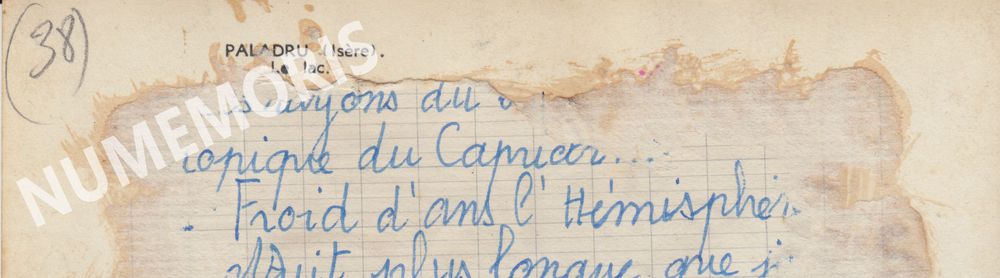 (38)
PALADRU (Isère).
Le lac.
NUMEMORIS
rayons du
ropique du Capricor....
Froid d'ans l'Hémisphèr
Nuit plus longue que j